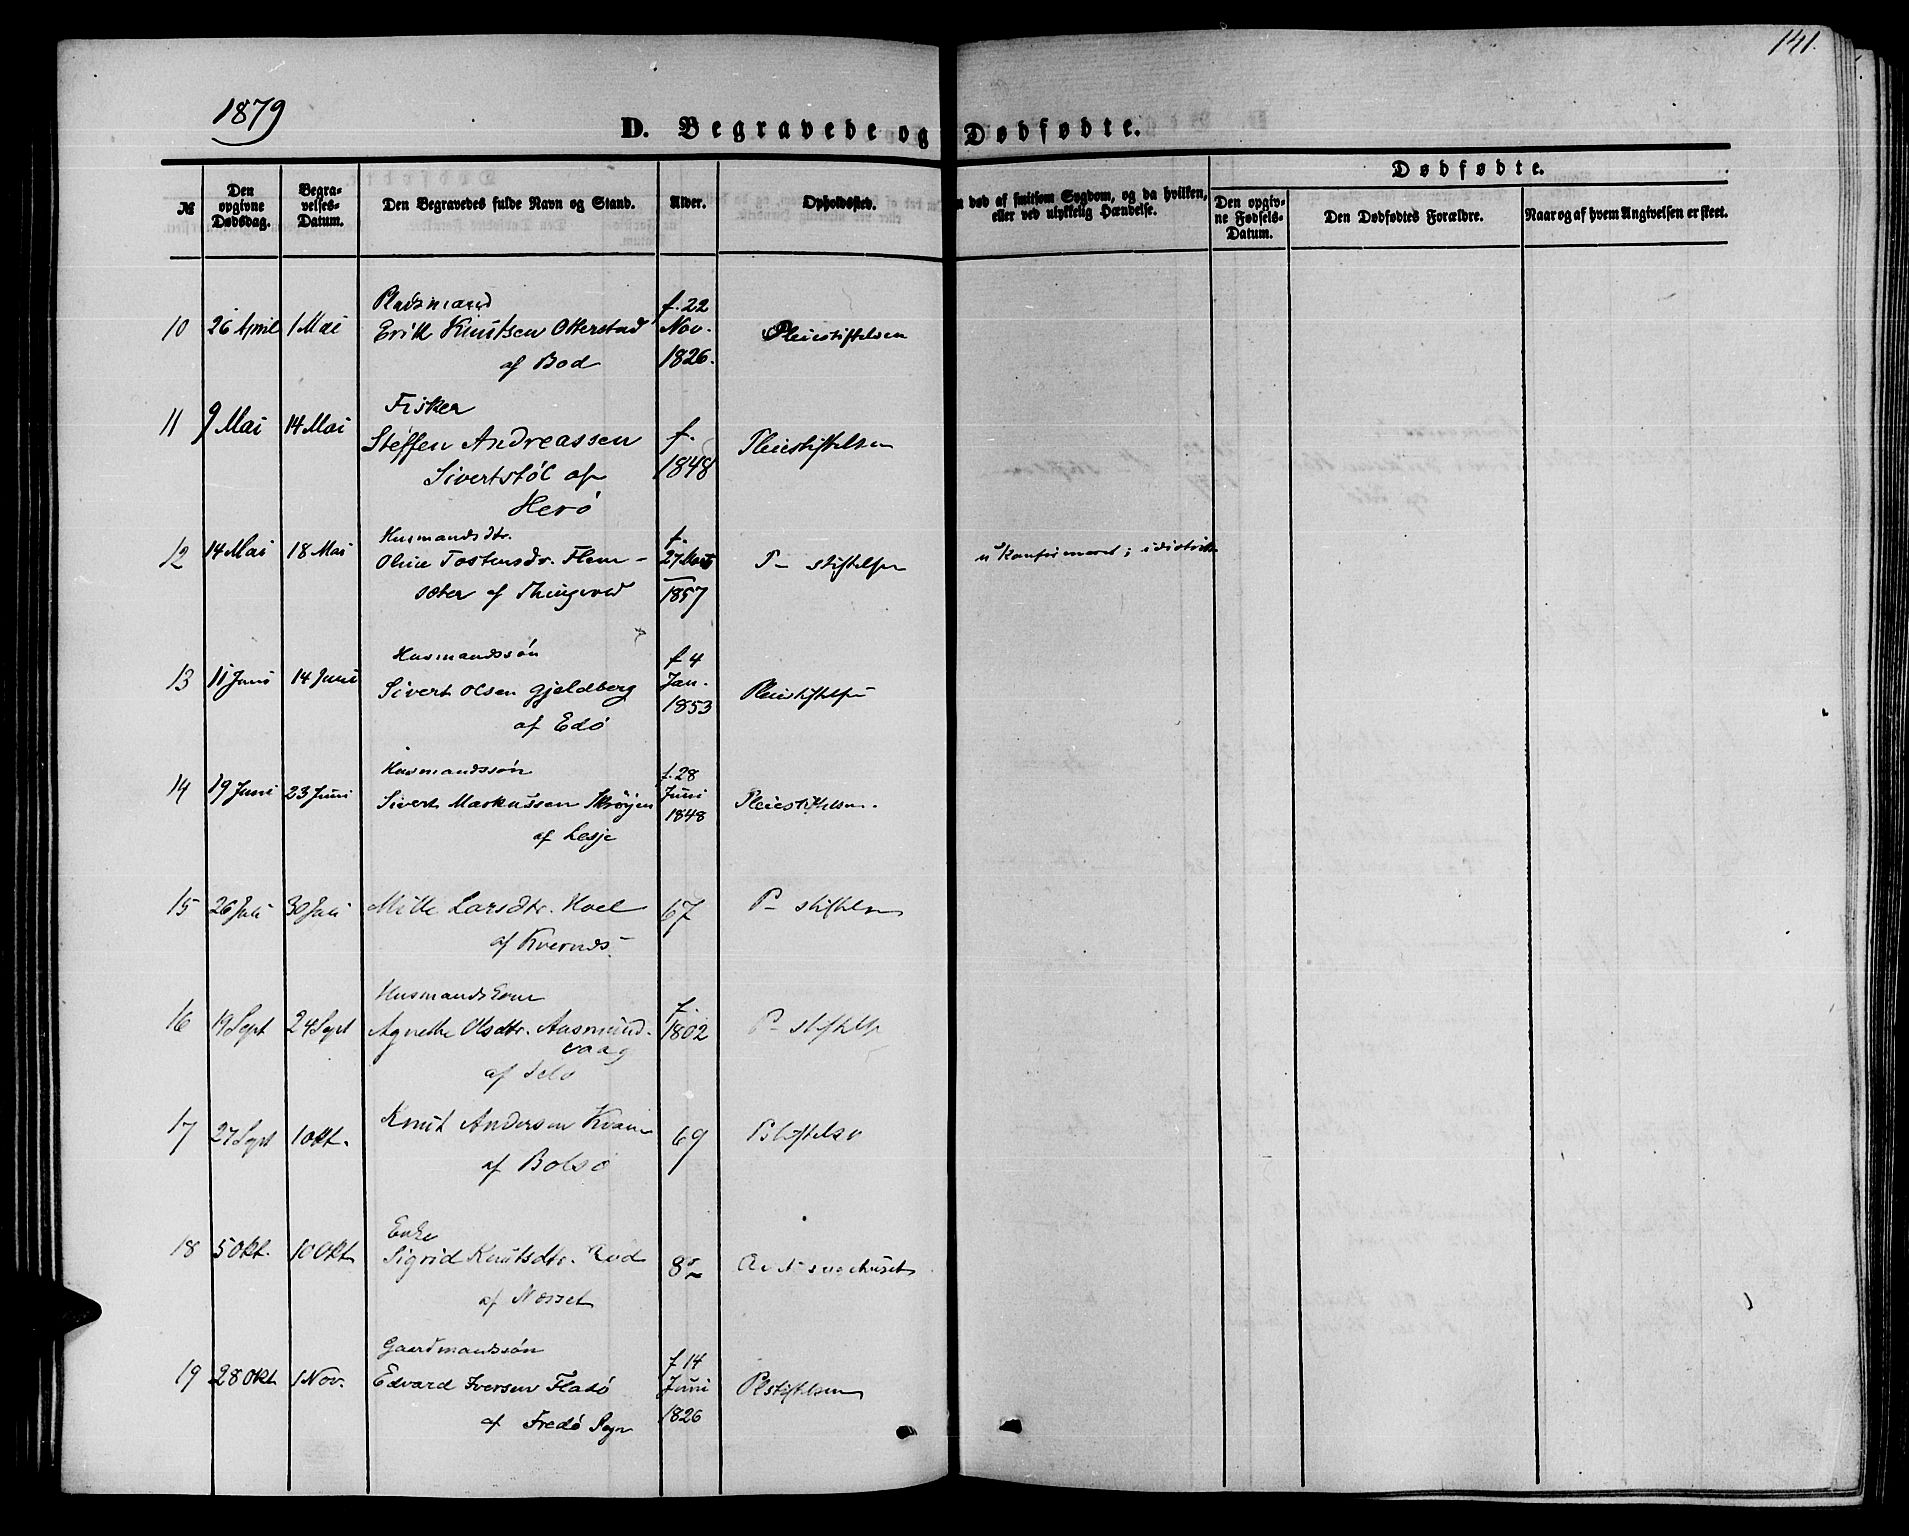 141.
1879
D. Begravede og Dødfødte.
№
Den opgivne Dødsdag.
Begravelses-Datum.
Den Begravedes fulde Navn og Stand.
Alder.
Opholdssted.
død af smitsom Sygdom, og da hvilken, eller ved ulykkelig Hændelse.
Dødfødte.
Den opgivne Fødsels-Datum.
Den Dødfødtes Forældre.
Naar og af hvem Angivelsen er skeet.
Pladsmand f. 22
10 26 April 1 Mai Erik Knutsen Otterstad Nov. Pleiestiftelsen
af Bod 1826.
Fisker
11 9 Mai 14 Mai Steffen Andreassen f. Pleiestiftelsen
Sivertstøl af 1848
Herö
Husmandsdtr. f.
12 14 Mai 18 Mai Oline Tostensdr. Flem- 27 P- stiftelsen ukonfirmeret; idiotisk
sæter af Thingvold 1857
Husmandssön f 4
13 11 Juni 14 Juni Sivert Olsen Gjeldberg Jan. Pleiestiftelsen
af Edö 1853
Husmandssøn f. 28
14 19 Juni 23 Juni Sivert Markussen Juni Pleiestiftelsen.
af Lesje 1848
15 26 Juli 30 Juli Mille Larsdtr. Hoel 67 P- stiftelsen
af Kvernes
Husmandskone f.
16 19 Sept 24 Sept Agnethe Olsdtr. Aasmund- 1802 P- stiftels
vaag
af
17 27 Sept 1 Okt. Knut Andersen 69 Pstiftelse
af Bolsö
Enke
18 5 Okt. 10 Okt Sigrid Knutsdtr. af Nesset
Gaardmandssön f 14
19 28 Okt 1 Nov. Edvard Iversen Fladö Juni Plstiftelsen
af Fredö 1826